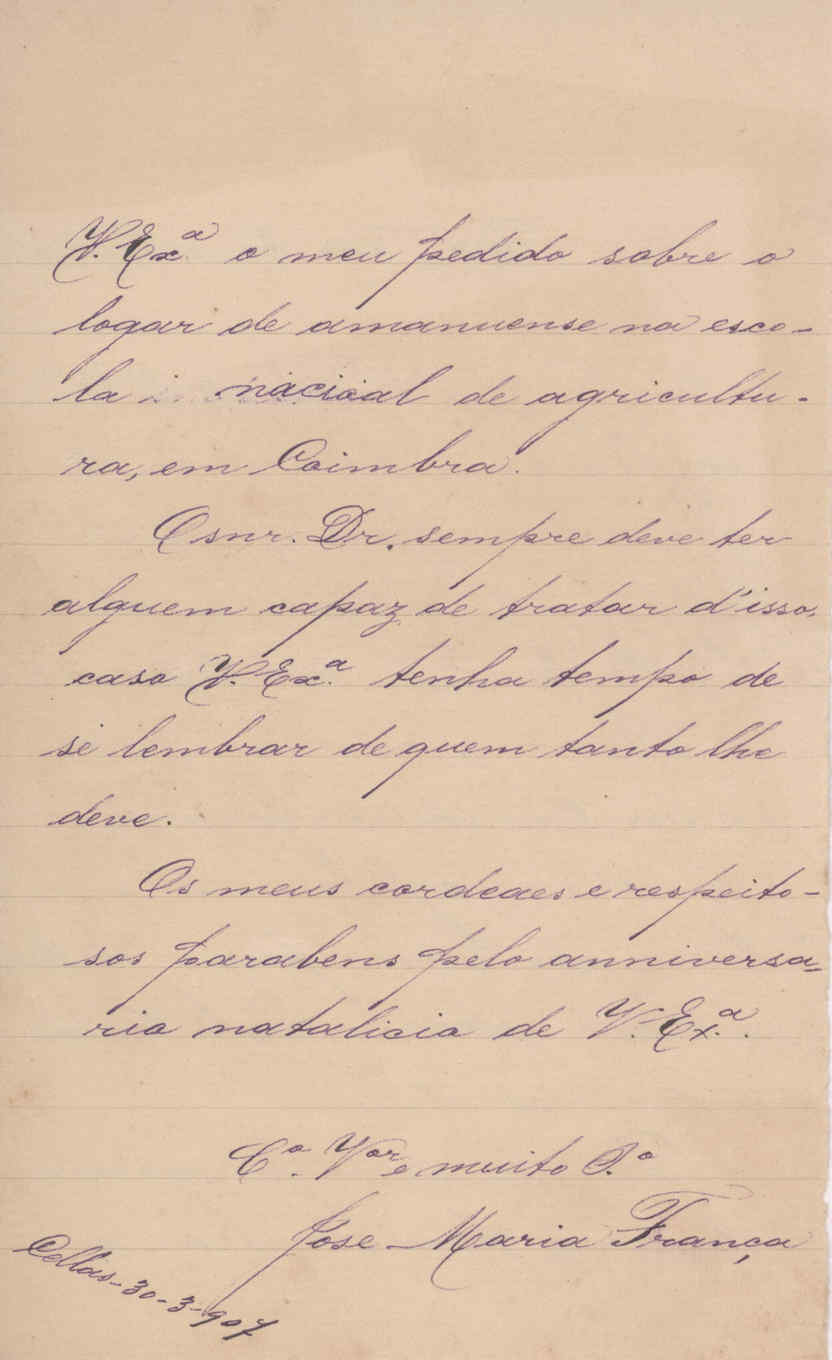 V. Ex.ª o meu pedido sobre o
logar de amanuense na esco-
la nacioal de agricultu-
ra, em Coimbra.
O snr. Dr. sempre deve ter
alguem capaz de tratar d'isso,
caso V. Ex.ª tenha tempo de
se lembrar de quem tanto lhe
deve.
Os meus cordeaes e respeito-
sos parabens pelo anniversa-
rio natalicio de V. Ex.ª.
C.º V.or e muito
Jose Maria França
Cellas-30-3-907